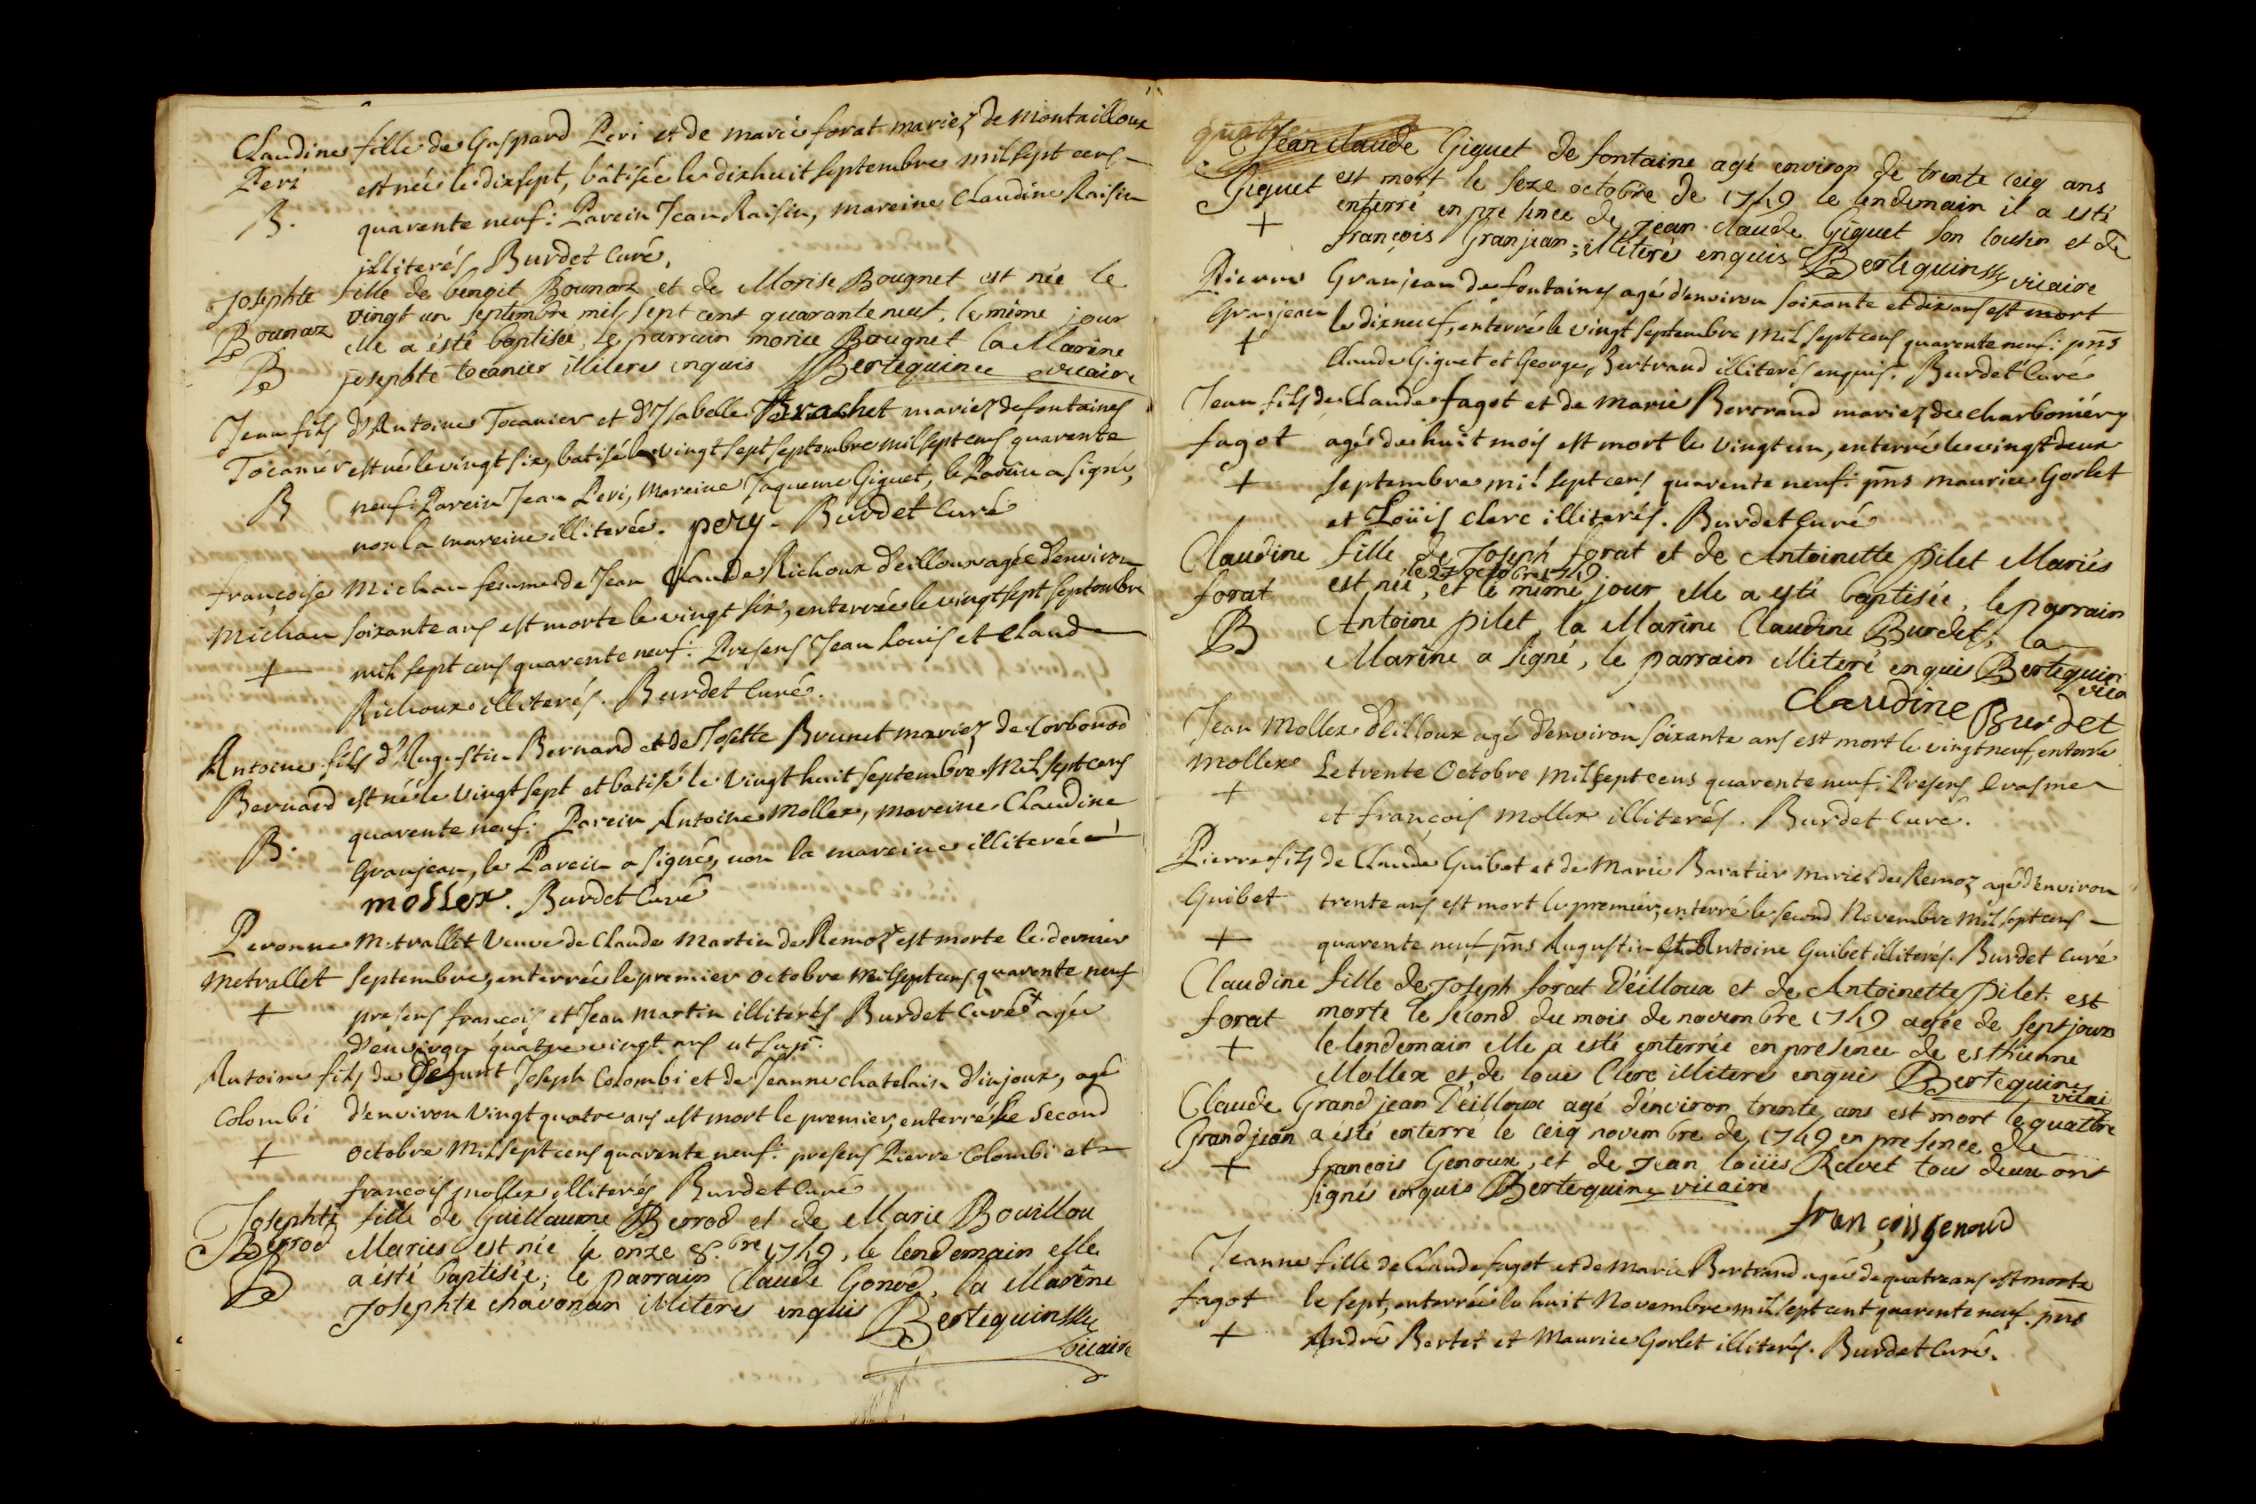 Claudine fille de Gaspard Peri et de marie forat mariez de Montailloux
Peri est née le dixsept, bâtisée le dixhuit septembre mil sept cens
B. quarente neuf: Parein Jean Raisin, mareine Claudine Raisin
illiterés Burdet Curé.
Josephte fille de benoit Bounaz et de Morise Bougnet est née le
Bounaz vingt un septembre mil sept cent quarante neuf, le mème jour
B elle a ésté baptisée, le parrain morice Bougnet la Marine
josephte tocanier illiteres enquis Bertequin vicaire
Jean fils d'Antoine Tocanier et d'Isabelle Brachet mariez de fontaines
Tocanier est né le vingt six, batisé le vingt sept septembre mil sept cens quarente
B neuf: Parein Jean Peri, Mareine Jaqueme Giguet, le Parein a signé,
non la mareine illiterée. pery - Burdet Curé
françoise Michau femme de Jean Claude Richoux d'eilloux agée d'environ
Michau soixante ans est morte le vingt six, enterrée le vingt sept septembre
+ mil sept cens quarente neuf. Presens Jean Louis et Claude
Richoux illiterés. Burdet Curé.
Antoine fils d'Augustin Bernard et de Josette Brunet mariez de Corbonod
Bernard est né le vingt sept et batisé le vingt huit septembre Mil sept cens
B. quarente neuf: Parein Antoine Mollex, mareine Claudine
Granjean, le Parein a signés, non la mareine illiterée
mollex. Burdet Curé
Peronne Metrallet Veuve de Claude Martin de Remoz est morte le dernier
Metrallet septembre, enterrée le premier octobre Mil sept cens quarente neuf
+ presens françois et Jean Martin illiterés Burdet Curé + agée
d'environ quatre vingt ans ut sup.
Antoine fils de Defunt Joseph Colombi et de Jeanne chatelain d'injoux, agé
Colombi d'environ Vingt quatre ans est mort le premier, enterré le second
+ octobre Mil sept cens quarente neuf: presens Pierre Colombi et
françois mollex illiterés Burdet Curé
Josephte fille de Guillaume Berrod et de Marie Bouillou
Berrod Mariés est née le onze 8.bre 1749, le lendemain elle
B a ésté baptisée; le parrain Claude Gonod, la Marine
Josephte chavanan illiteres enquis Bertequin
vicaire
Jean claude Giguet de fontaine agé environ de trente ceiq ans
Giguet est mort le seze octobre de 1749 le lendemain il a esté
+ enterré en presence de jean claude Giguet son cousin et de
françois Granjean; illiteré enquis Bertequin vicaire
Pierre Granjean de fontaines agé d'environ soixante et dix ans est mort
Granjean le dixneuf, enterré le vingt septembre Mil sept cens quarente neuf: pns
+ Claude Giguet et George Bertrand illiterés enquis. Burdet Curé
Jean fils de Claude fagot et de Marie Bertrand mariez de charboniéry
fagot agé de huit mois est mort le vingt un, enterré le vingt deux
+ septembre mil sept cens quarente neuf: pns maurice Gorlet
et Loüis clerc illiterés. Burdet Curé
Claudine fille de Joseph forat et de Antoinette pilet Mariés
le 27 octobre 1749
forat est née, et le mème jour elle a esté baptisée, le parrain
B Antoine pilet, la Marine Claudine Burdet, la
Marine a signé, le parrain illiteré enquis Bertequin
vica
Claudine Burdet
Jean Mollex d'eilloux agé d'environ soixante ans est mort le vingt neuf, enterré
mollex Le trente Octobre Mil sept cens quarente neuf: Presens Erasme
+ et françois mollex illiterés. Burdet Curé.
Pierre fils de Claude Guibet et de Marie Baratier mariez de Remoz agé d'environ
Guibet trente ans est mort le premier, enterré le second Novembre Mil sept cens
+ quarente neuf pns Augustin et Antoine Guibet illiterés. Burdet Curé
Claudine fille de Joseph forat d'éilloux et de Antoinette pilet est
forat morte le second du mois de novembre 1749 agée de sept jours
+ le lendemain elle a esté enterrée en presence de esthienne
Mollex et de loues Clerc illiteré enquis Bertequin
vicai
Claude Grandjean d'eilloux agé d'environ trente ans est mort le quattre
Grandjean a ésté enterré le ceiq novembre de 1749 en presence de
+ françois Genoux, et de jean loüis Ravet tous deux ont
signé enquis Bertequin vicaire
françois genoud
Jeanne fille de Claude fagot et de Marie Bertrand agée de quatre ans est morte
fagot le sept, enterrée le huit Novembre mil sept cent quarente neuf. pns
+ André Bertet et Maurice Gorlet illiterés. Burdet Curé.